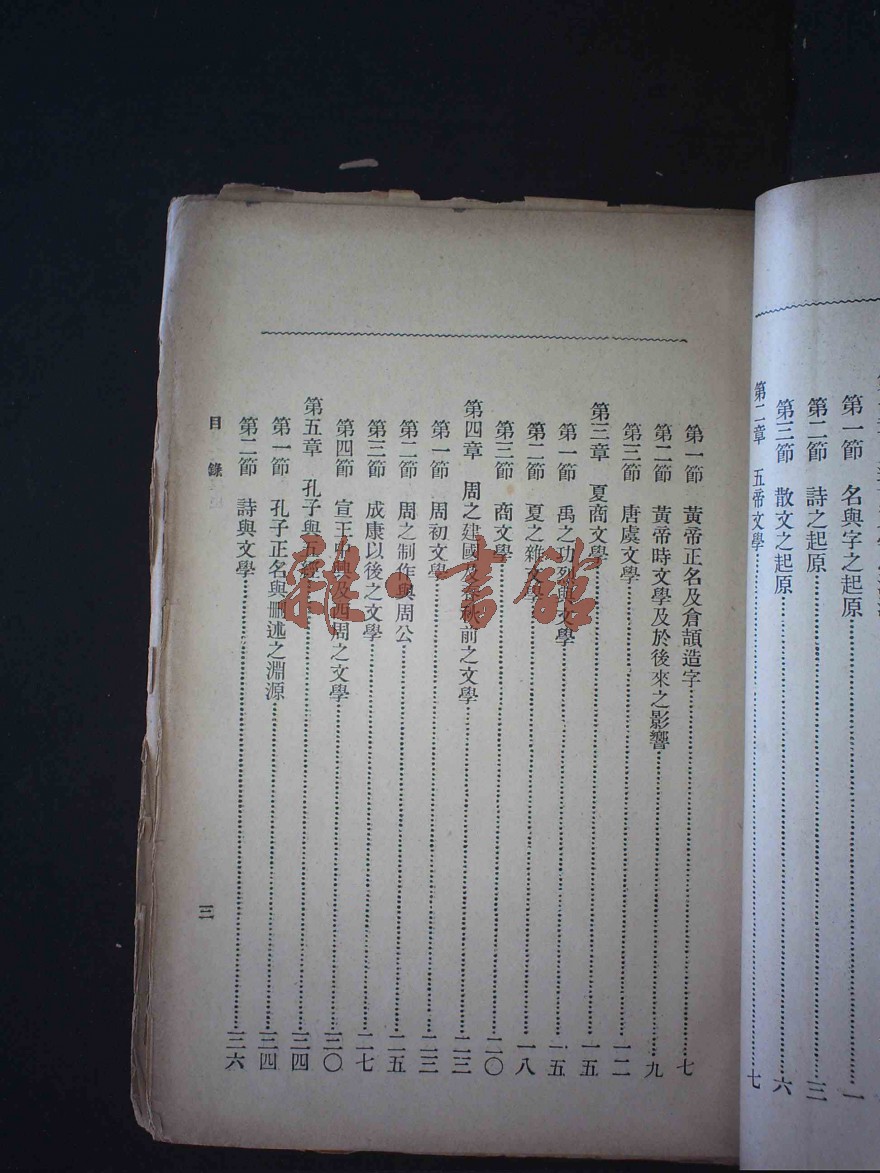 第一節 名與字之起原……一
第二節 詩之起原……三
第三節 散文之起原……六
第二章 五帝文學……七
第一節 黃帝正名及倉頡造字……七
第二節 黃帝時文學及於後來之影響……九
第三節 唐虞文學……一二
第三章 夏商文學……一五
第一節 禹之功烈與文學……一五
第二節 夏之雜文學……一八
第三節 商文學……二〇
第四章 周之建國及春秋前之文學……二三
第一節 周初文學……二三
第二節 周之制作與周公……二五
第三節 成康以後之文學……二七
第四節 宣王中興及西周之文學……三〇
第五章 孔子與五經……三四
第一節 孔子正名與刪述之淵源……三四
第二節 詩與文學……三六
目錄
三
雜·書館